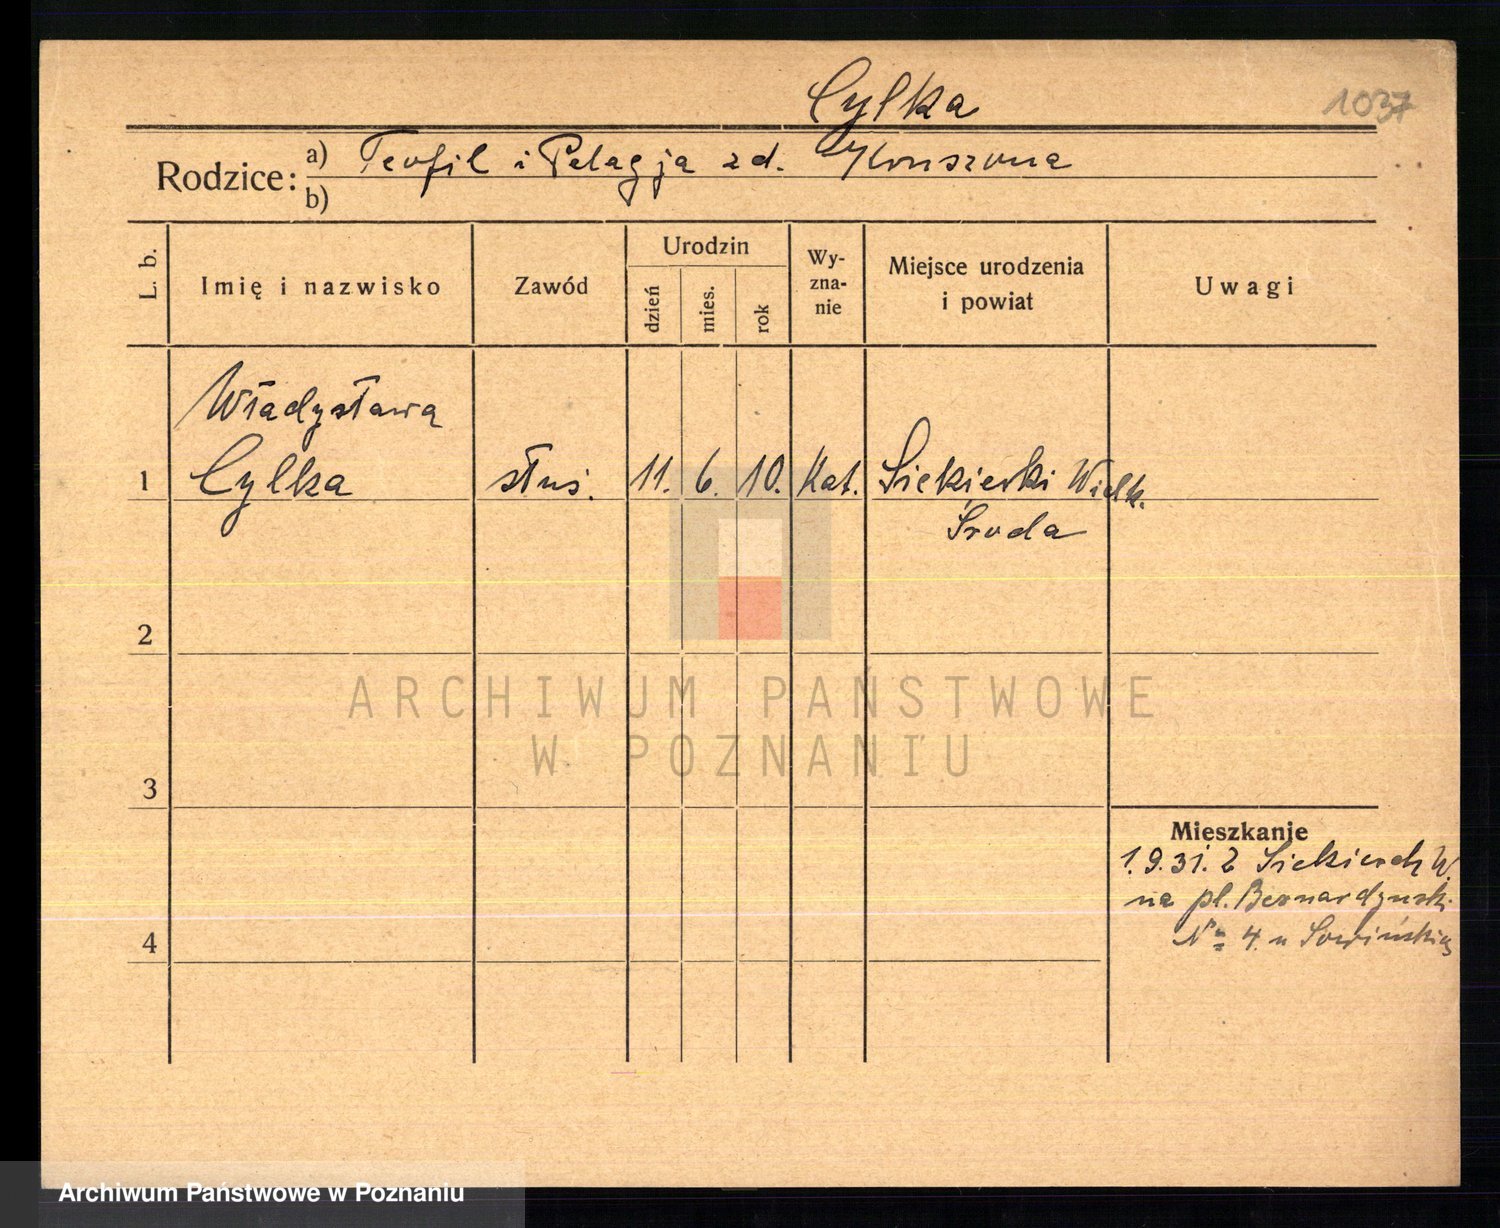 Cylka
1037
Rodzice: a) Teofil i Pelagja z d.
b)
L. b. Imię i nazwisko Zawód Urodzin dzień mies. rok Wy-zna-nie Miejsce urodzenia i powiat Uwagi
Władysława
1 Cylka służ. 11. 6. 10. Kat. Siekierki Wielk.
Środa
2
ARCHIWUM PAŃSTWOWE
W POZNANIU
3
Mieszkanie
1.9.31. z Siekierek W.
na pl. Bernardyński
4 No 4. u Sowińskiej
Archiwum Państwowe w Poznaniu